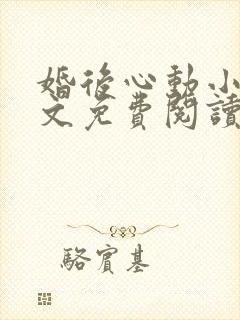 婚後心動小
文免費閱讀
駱賓基